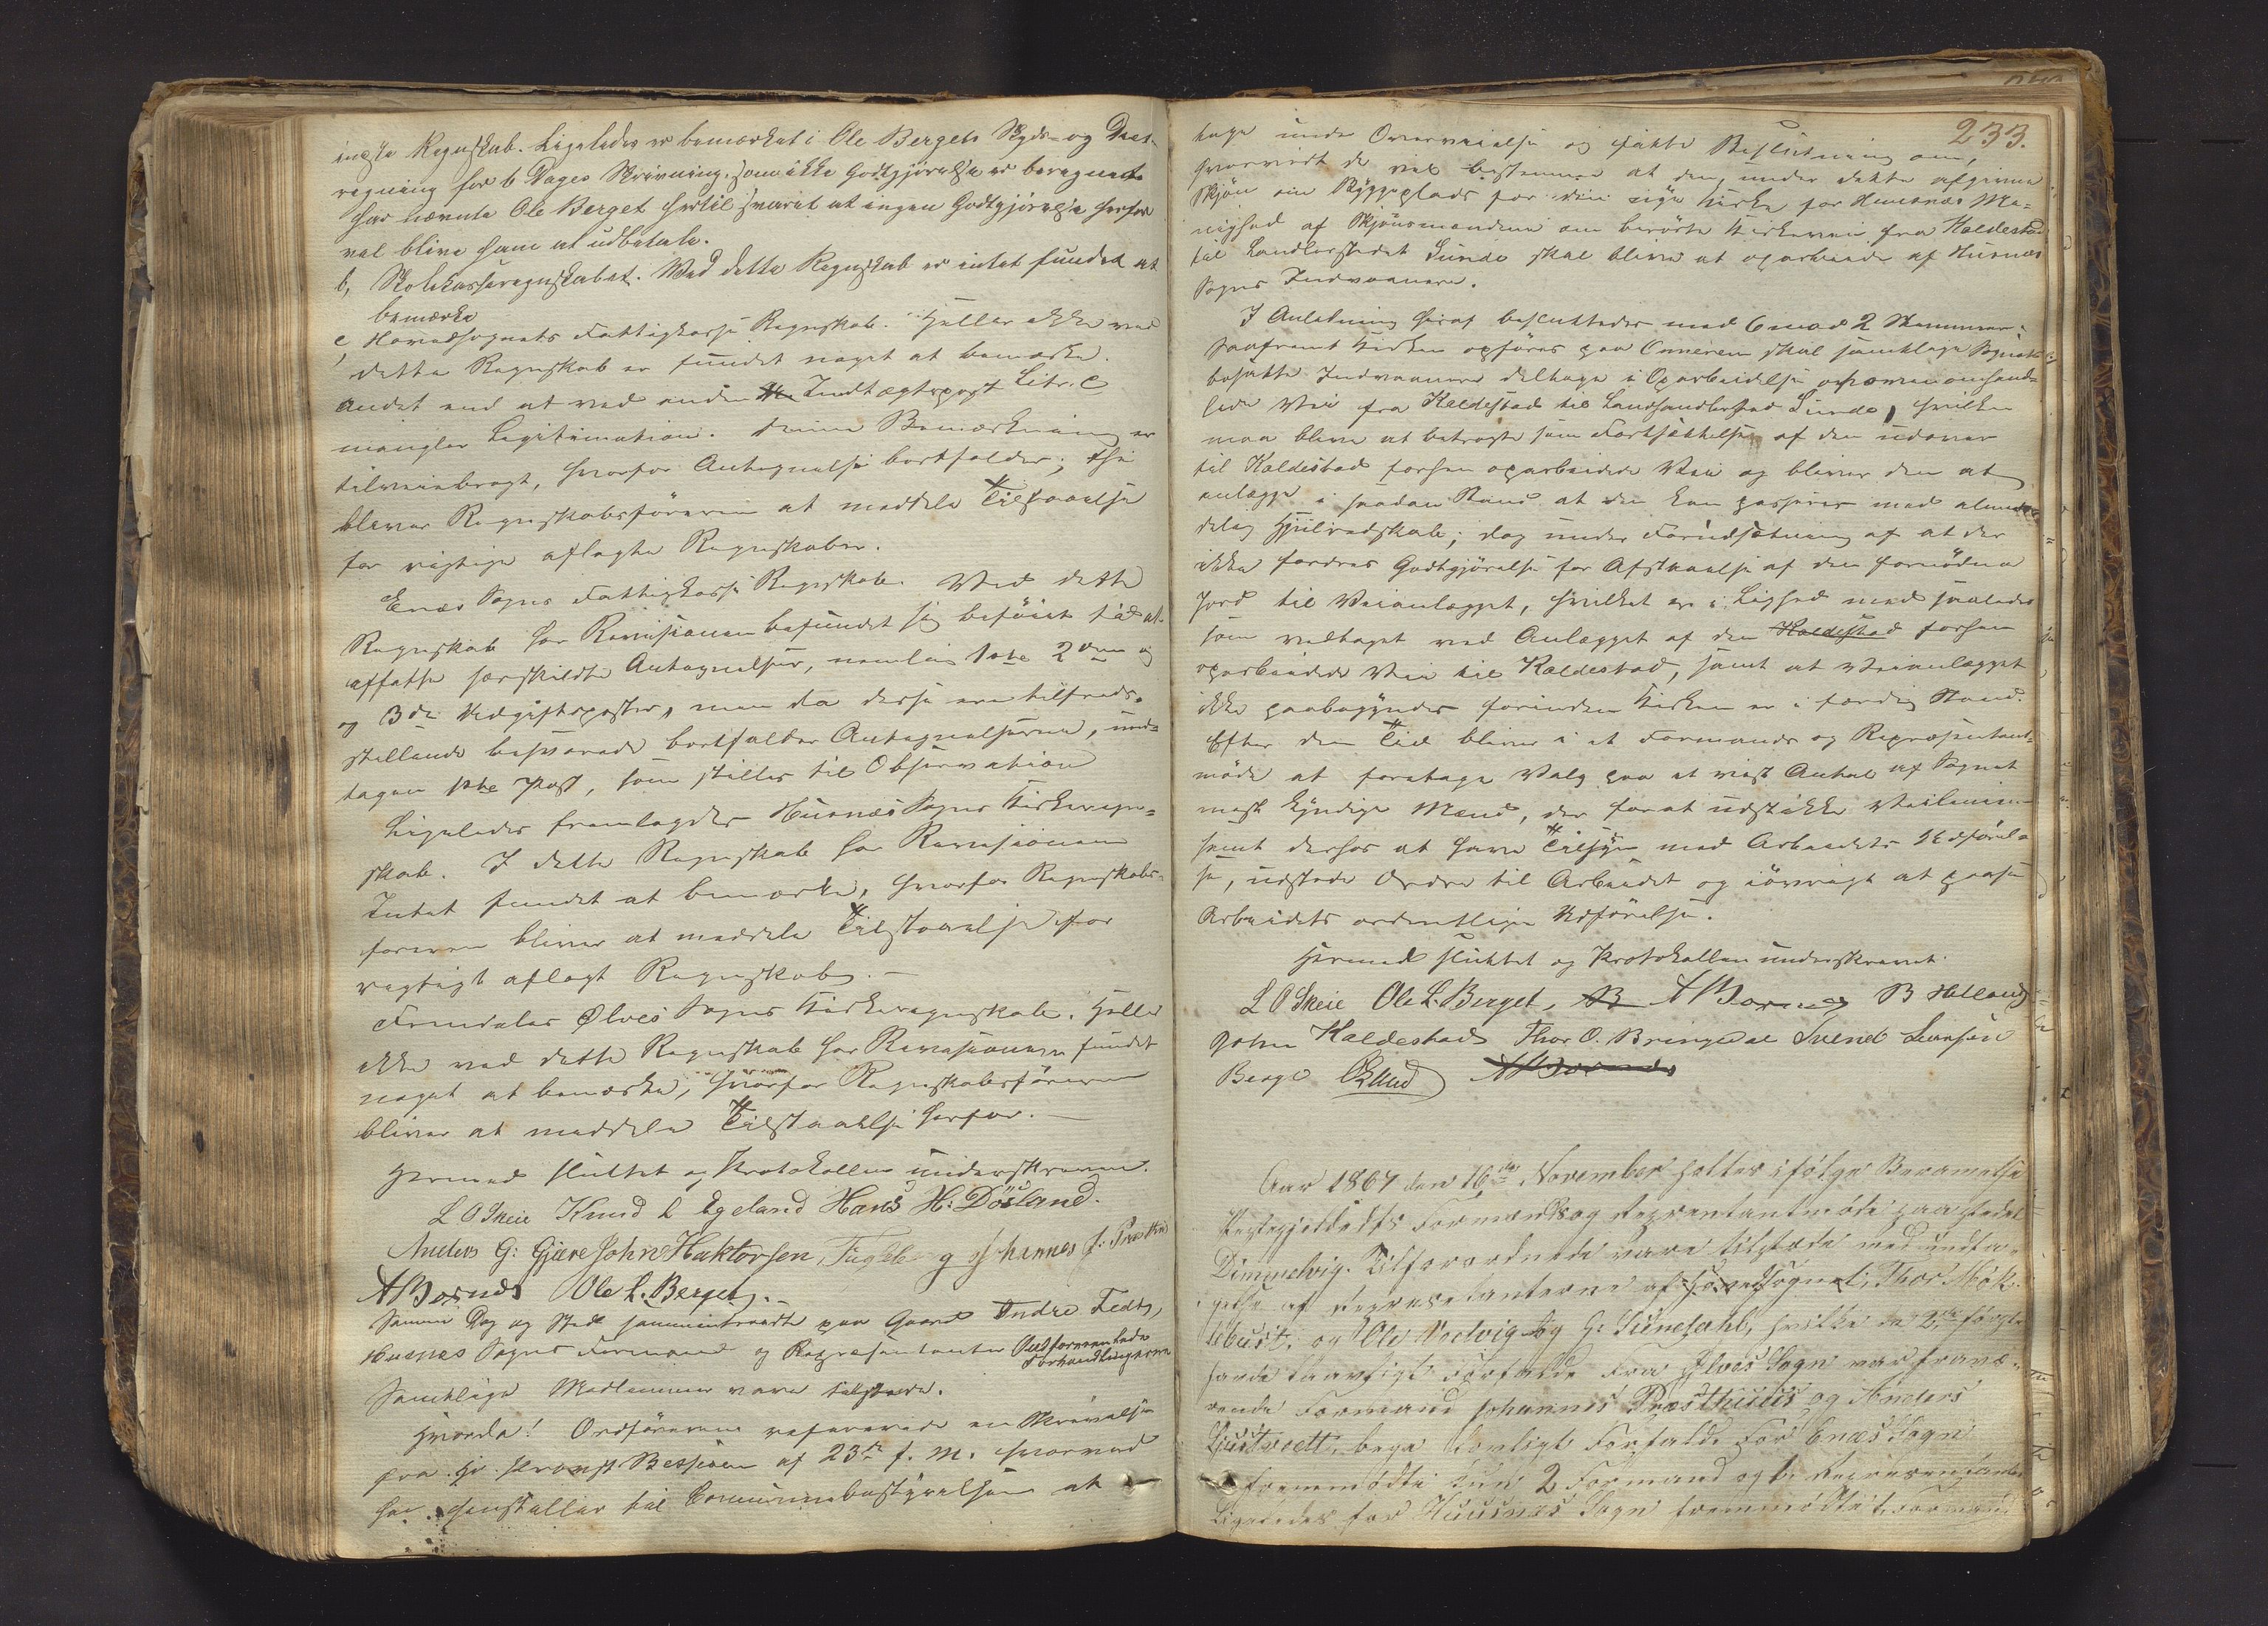 inøste Regnskab. Ligeledes er bemærket i Ole Bergets Skyds- og Diæt-
regning for 6 Dages Skrivning, som ikke Godtgjørelse er beregnet.
har nævnte Ole Berget hertil svaret at ingen Godtgjørelse herfor
vel blive ham at udbetale.
b, Skolekasseregnskabet. Ved dette Regnskab er intet fundet at
bemærke
c, Hovedsognets Fattigkasse Regnskab. Heller ikke ved
dette Regnskab er fundet noget at bemærke.
Andet end at ved anden Indtægtspost Litr. C
mangler Legitimation. Denne Bemærkning er
tilveiebragt, hvorfor Antegnelse bortfalder; thi
bliver Regnskabsføreren at meddele Tilstaaelse
for rigtige aflagte Regnskaber.
Enæs Sogns Fattigkasse Regnskab. Ved dette
Regnskab har Revisionen befundet sig beføiet til at
affatte særskildte Antegnelser, nemlig 1ste 2den og
og 3die Udgiftsposter, men da disse ere tilfreds-
stillende besvarede bortfalder Antegnelserne, und-
tagen 1ste Post, som stilles til Observation
Ligeledes fremlagdes Husnæs Sogns Kirkeregn-
skab. I dette Regnskab har Revisionen
Intet fundet at bemærke, hvorfor Regnskabs-
føreren bliver at meddele Tilstaaelse for
rigtigt aflagt Regnskab. —
Fremdeles Ølves Sogns Kirkeregnskab. Heller
ikke ved dette Regnskab har Revisionen fundet
noget at bemærke, hvorfor Regnskabsføreren
bliver at meddele Tilstaaelse herfor. —
Hermed sluttet og Protokollen underskreven.
L O Skeie Knud L Egeland Hans H: Dösland.
Anders G: Gjære John Haktorsen, Johannes J.
A Bornes Ole L. Berget. —
Samme Dag og Sted sammentraadte paa Gaard Indre Fedt,
Husnæs Sogns Formænd og Repræsentanter
Ordføreren ledede
Forhandlingerne
Samtlige Medlemmer vare tilstede.
Hvorda! Ordføreren refererede en Skrivelse
fra Hr. Provst Bessesen af 23de f. M. hvorved
han henstiller til Communebestyrelsen at
233.
tage under Overveielse og fatte Beslutning om,
hvorvidt de vil bestemme at den, under dette afgivne
Skjøn om Byggeplads for den nye Kirke for Husnæs Me-
nighed af Skjønsmændene om berørte Kirkevei fra Kaldestad
til Landlerstedet Sunde skal blive at oparbeide af Husnæs
Sogns Indvaanere.
I Anledning heraf besluttedes med 6 mod 2 Stemmer:
saafremt Kirken opføres paa skal samtlige Sognets
bosatte Indvaanere deltage i Oparbeidelse af omhand-
lede Vei fra Kaldestad til Landhandlersted Sunde, hvilken
maa blive at betragte som Fortsættelse af den udover
til Kaldestad forhen oparbeidede Vei og bliver den at
anlægge i saadan Stand at den kan passeres med almin-
delig Hjulredskab; dog under Forudsætning af at der
ikke fordres Godtgjørelse for Afstaaelse af den fornødne
Jord til Veianlægget, hvilket er i Lighed med saaledes
som vedtaget ved Anlægget af den Kaldestad forhen
oparbeidede Vei til Kaldestad, samt at Veianlægget
ikke paabegyndes forinden Kirken er i færdig Stand.
Efter den Tid bliver i et Formands og Repræsentant-
møde at foretage Valg paa et vist Antal af Sognet
mest kyndige Mænd, der forat udstikke Veilinien
samt derhos at have Tilsyn med Arbeidets Udførel-
se, udstede Ordre til Arbeidet og iøvrigt at paase
Arbeidets ordentlige Udførelse.
Hermed sluttet og Protokollen underskrevet.
L O Skeie Ole L. Berget, A Bornes B Helland
John Kaldestad Thor O. Bringedal Svend Larsen
Berge
Aar 1867 den 16de November holtes ifølge Berammelse
Præstegjeldets Formænds og Repræsentantmøde paa Stedet
Dimmelvig. Tilforordnede vare tilstede med undta-
gelse af Repræsentanterne af Hovedsognet; Thor
og Ole Vedvig og G: Tunesahl, hvilke de 2de første
havde lovligt Forfald. Fra Ølves Sogn var fravæ-
rende Formand Johannes Præsthuus og Anders
Gjustveett, bege lovligt Forfald. For Enæs Sogn
fremmødte kun 2 Formænd og 6 Repræsentanter
Ligeledes for Huusnæs Sogn fremmødte 1 Formand